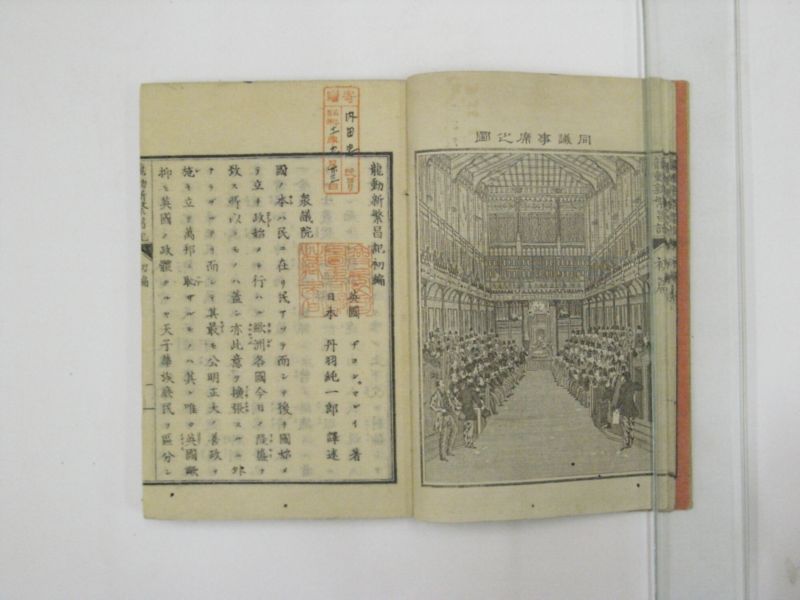 同議事席之圖
龍動新繁昌記初編
英國 著
日本 丹羽純一郎 譯述
衆議院
國ノ本ハ民ニ在リ民アツテ而シテ後チ國始メ
テ立チ政始メテ行ハル歐洲各國今日ノ隆盛ヲ
致ス所以ノモノハ蓋シ亦此意ヲ擴張スルニ外
ナラザルナリ而シテ其最モ公明正大ノ善政ヲ
施キ立 萬邦ニ恥ヂザルモノハ其レ唯英國歟
抑モ英國ノ政體タルヤ天子華族庶民ヲ區分シ
龍動新繁昌記 初編
寄贈
內田